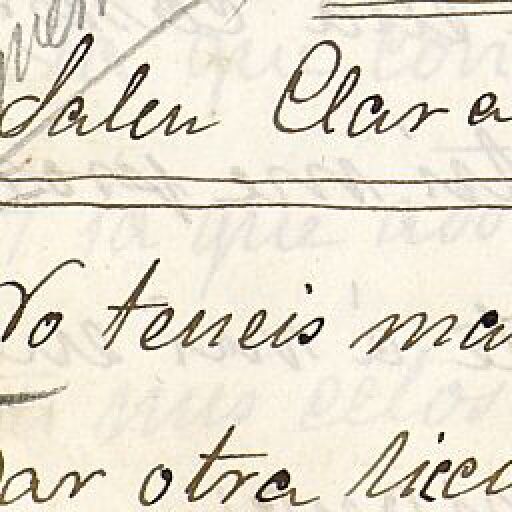 Salen Clara
No teneis ma
ar otra